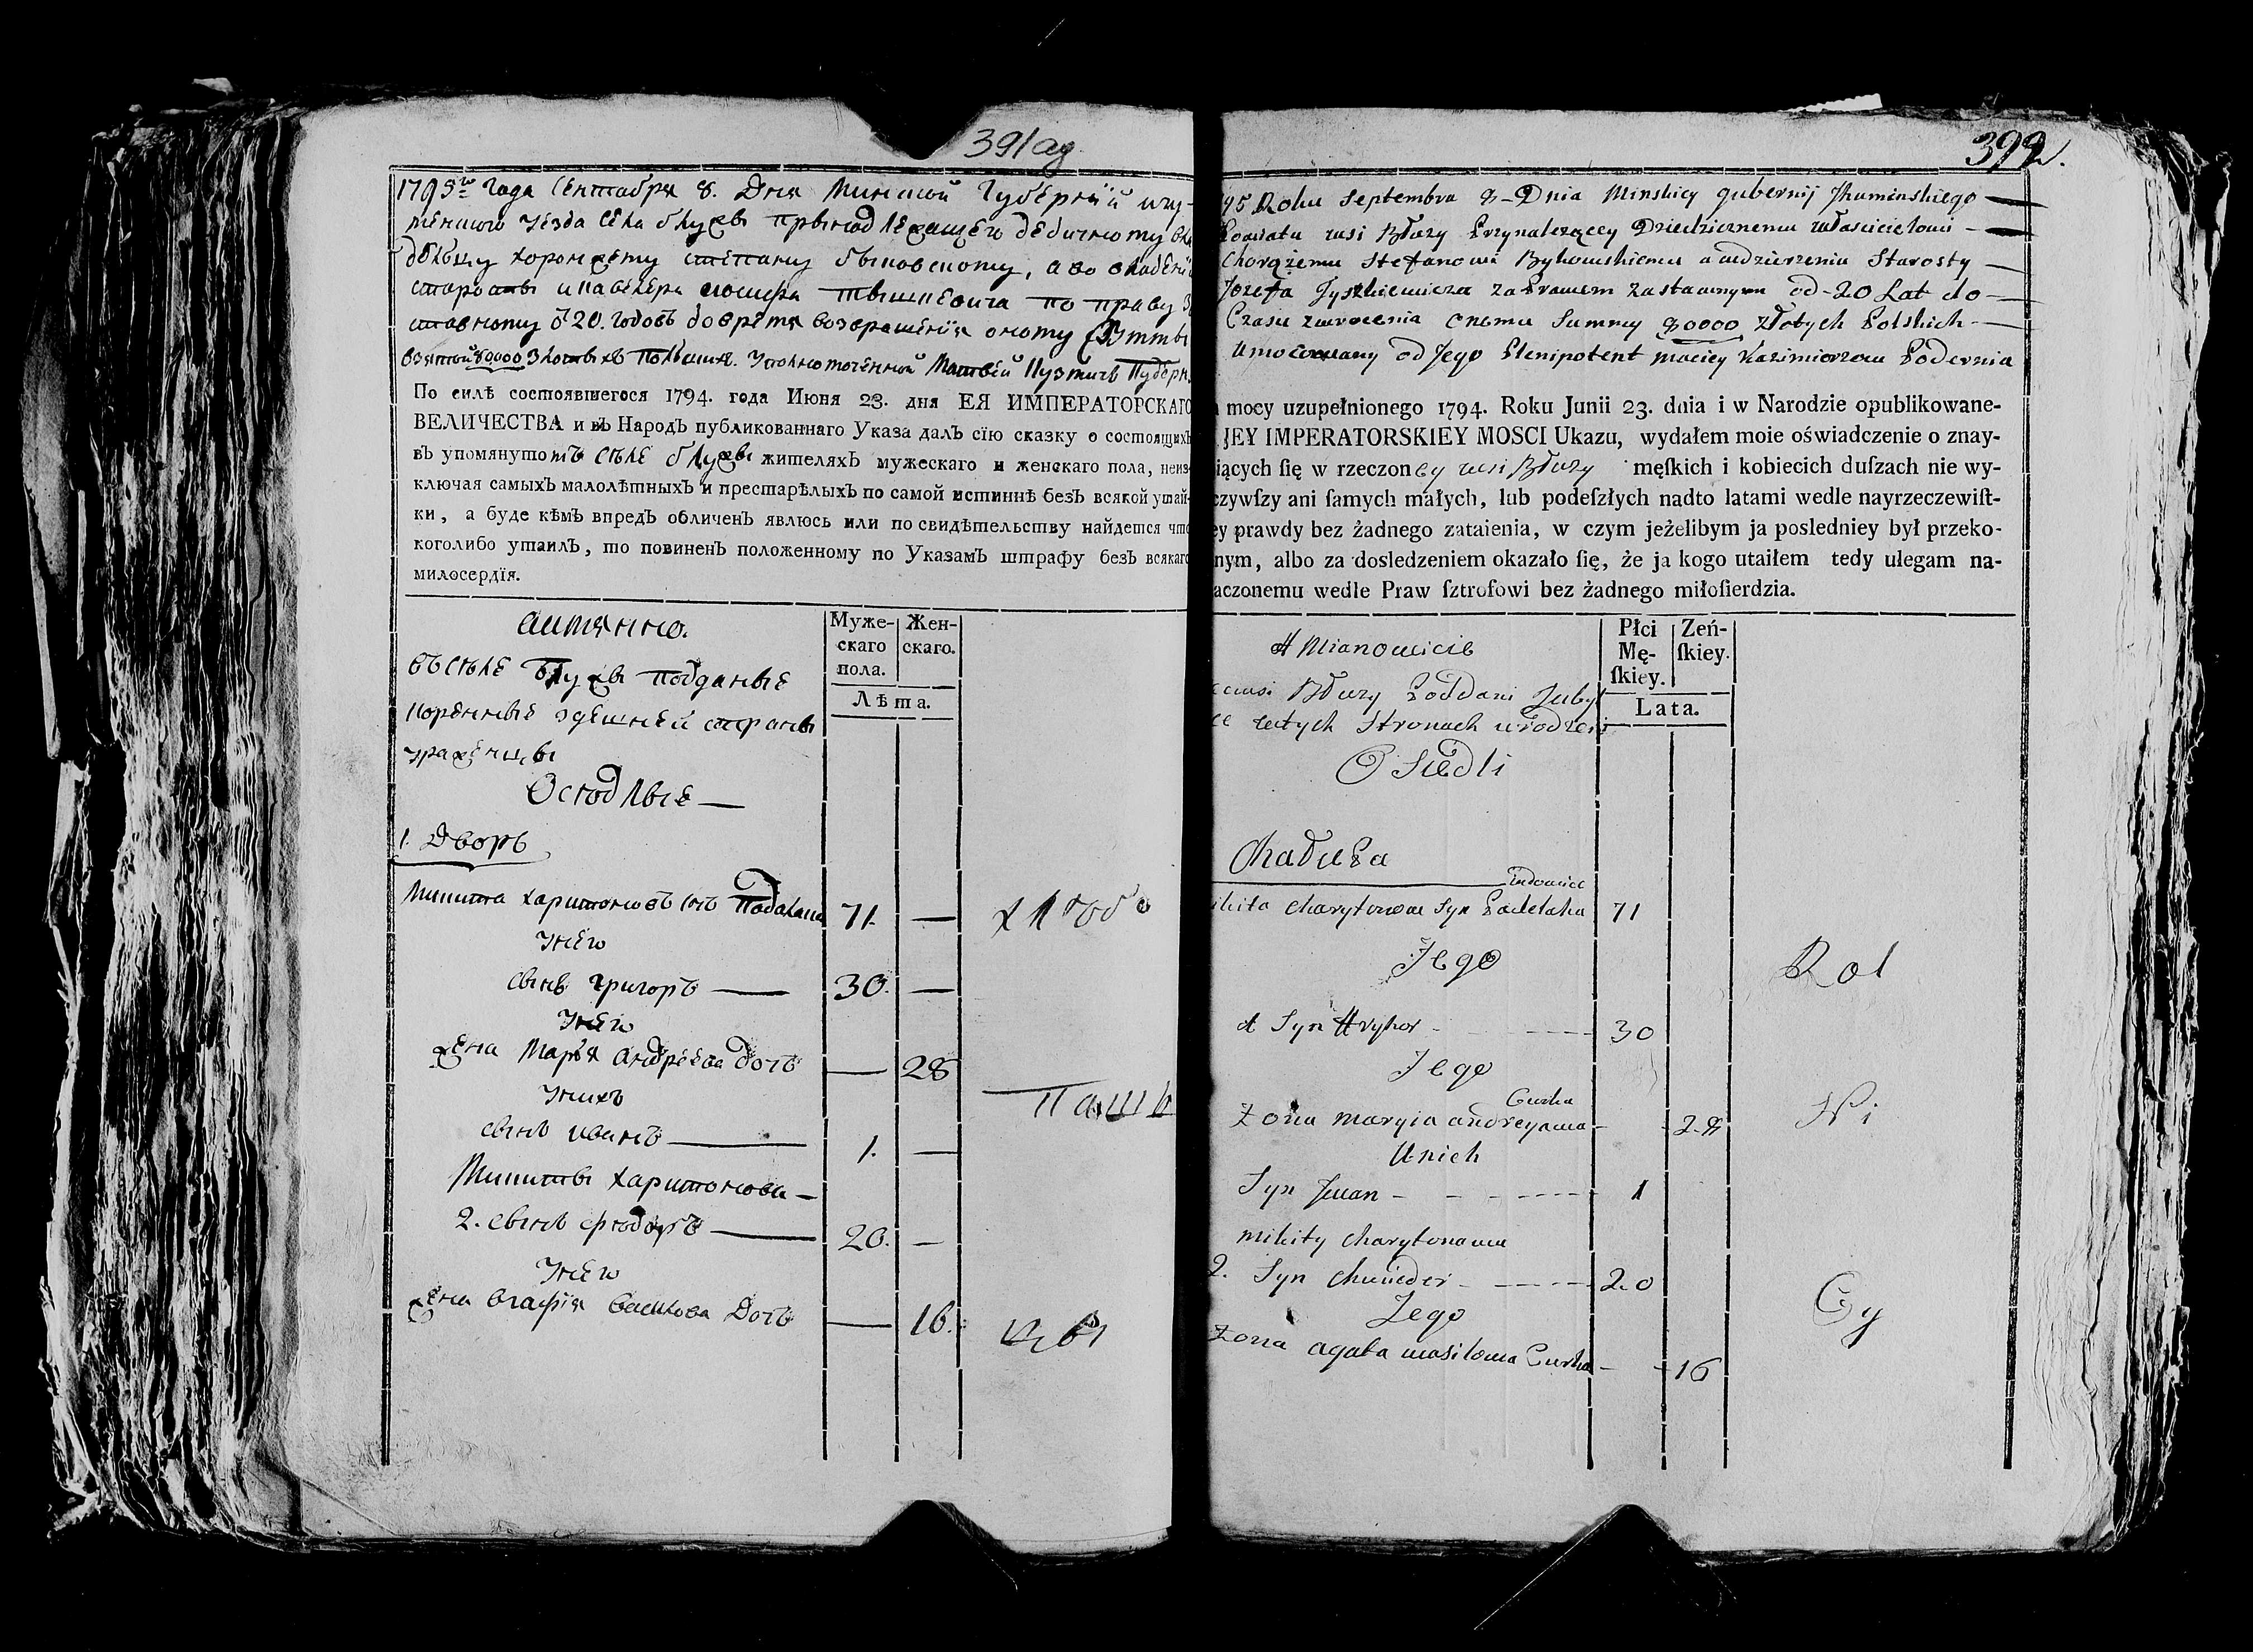 391 ад
1795го года Сентября 8. Дня Минской Губернїй игу-
менского уезда села блужы
дельцу хоронжему степану быковскому, а во владенїи
старосты и кавалера иосифа тышкевича по праву
ставному 20. годовъ до время возвращенїя оному
80000 злотыхъ польскихъ.
По силѣ состоявшегося 1794. года Июня 23. дня ЕЯ ИМПЕРАТОРСКАГО
ВЕЛИЧЕСТВА и въ Народъ публикованнаго Указа далъ сїю сказку о состоящихъ
въ упомянутомъ селе блужы жителяхъ мужескаго и женскаго пола, неиз-
ключая самыхъ малолѣтныхъ и престарѣлыхъ по самой истиннѣ безъ всякой утай-
ки, а буде кѣмъ впредъ обличенъ явлюсь или по свидѣтельству найдется что
коголибо утаилъ, то повиненъ положенному по Указамъ штрафу безъ всякаго
милосердїя.
аимянно.
Муже-скаго пола.
Жен-скаго.
Лѣта.
въ селе блужы подданые
коренные здешней страны
ураженцы
Оселые —
1. Дворъ
Микита харитоновъ сынъ 71. —
у него
сынъ григоръ — 30. —
у него
жена Марья андреева дочь — 28
у нихъ
сынъ иванъ — 1. —
Микиты харитонова —
2. сынъ фіодоръ — 20. —
у него
жена агафія василова дочь — 16.
хлѣбо
паш
цы
392.
95 Roku Septembra 8-Dnia Minskiey gubernij Jhumenskiego —
Powiatu wsi Błuzy Przynalezącey Dziedzicznemu własicielowi —
Chorązemu Stefanowi Bykowskiemu a w dzierzeniu Starosty —
Jozefa Tyszkiewicza za Prawem zastawnym od 20 Lat do —
Czasu zwrocenia onemu Summy 80000 złotych Polskich —
Umocowany od Jego Plenipotent Maciey Kazimierzow
mocy uzupełnionego 1794. Roku Junii 23. dnia i w Narodzie opublikowane-
JEY IMPERATORSKIEY MOSCI Ukazu, wydałem moie oświadczenie o znay-
iących ſię w rzeczoney wsi Błuzy męſkich i kobiecich duſzach nie wy-
czywſzy ani ſamych małych, lub podeſzłych nadto latami wedle nayrzeczewiſt-
ey prawdy bez żadnego zataienia, w czym jeżelibym ja posledniey był przeko-
nym, albo za dosledzeniem okazało ſię, że ja kogo utaiłem tedy ulegam na-
aczonemu wedle Praw ſztrofowi bez żadnego miłoſierdzia.
A Mianowicie
Płci Mę-ſkiey.
Zeń-ſkiey.
Lata.
wsi Błuzy Poddani
w tych Stronach urodzeni
Osiedli
Chałupa
wdowiec
ikita Charytonow Syn 71
Jego
A Syn Hryhor - 30
Jego
Curka
Zona Maryia andreyowa - 28
U nich
Syn Jwan - 1
Mikity Charytonowa
2. Syn Chwiedor - 20
Jego
Zona agata wasilowa Curka - 16
Rol
Ni
Cy